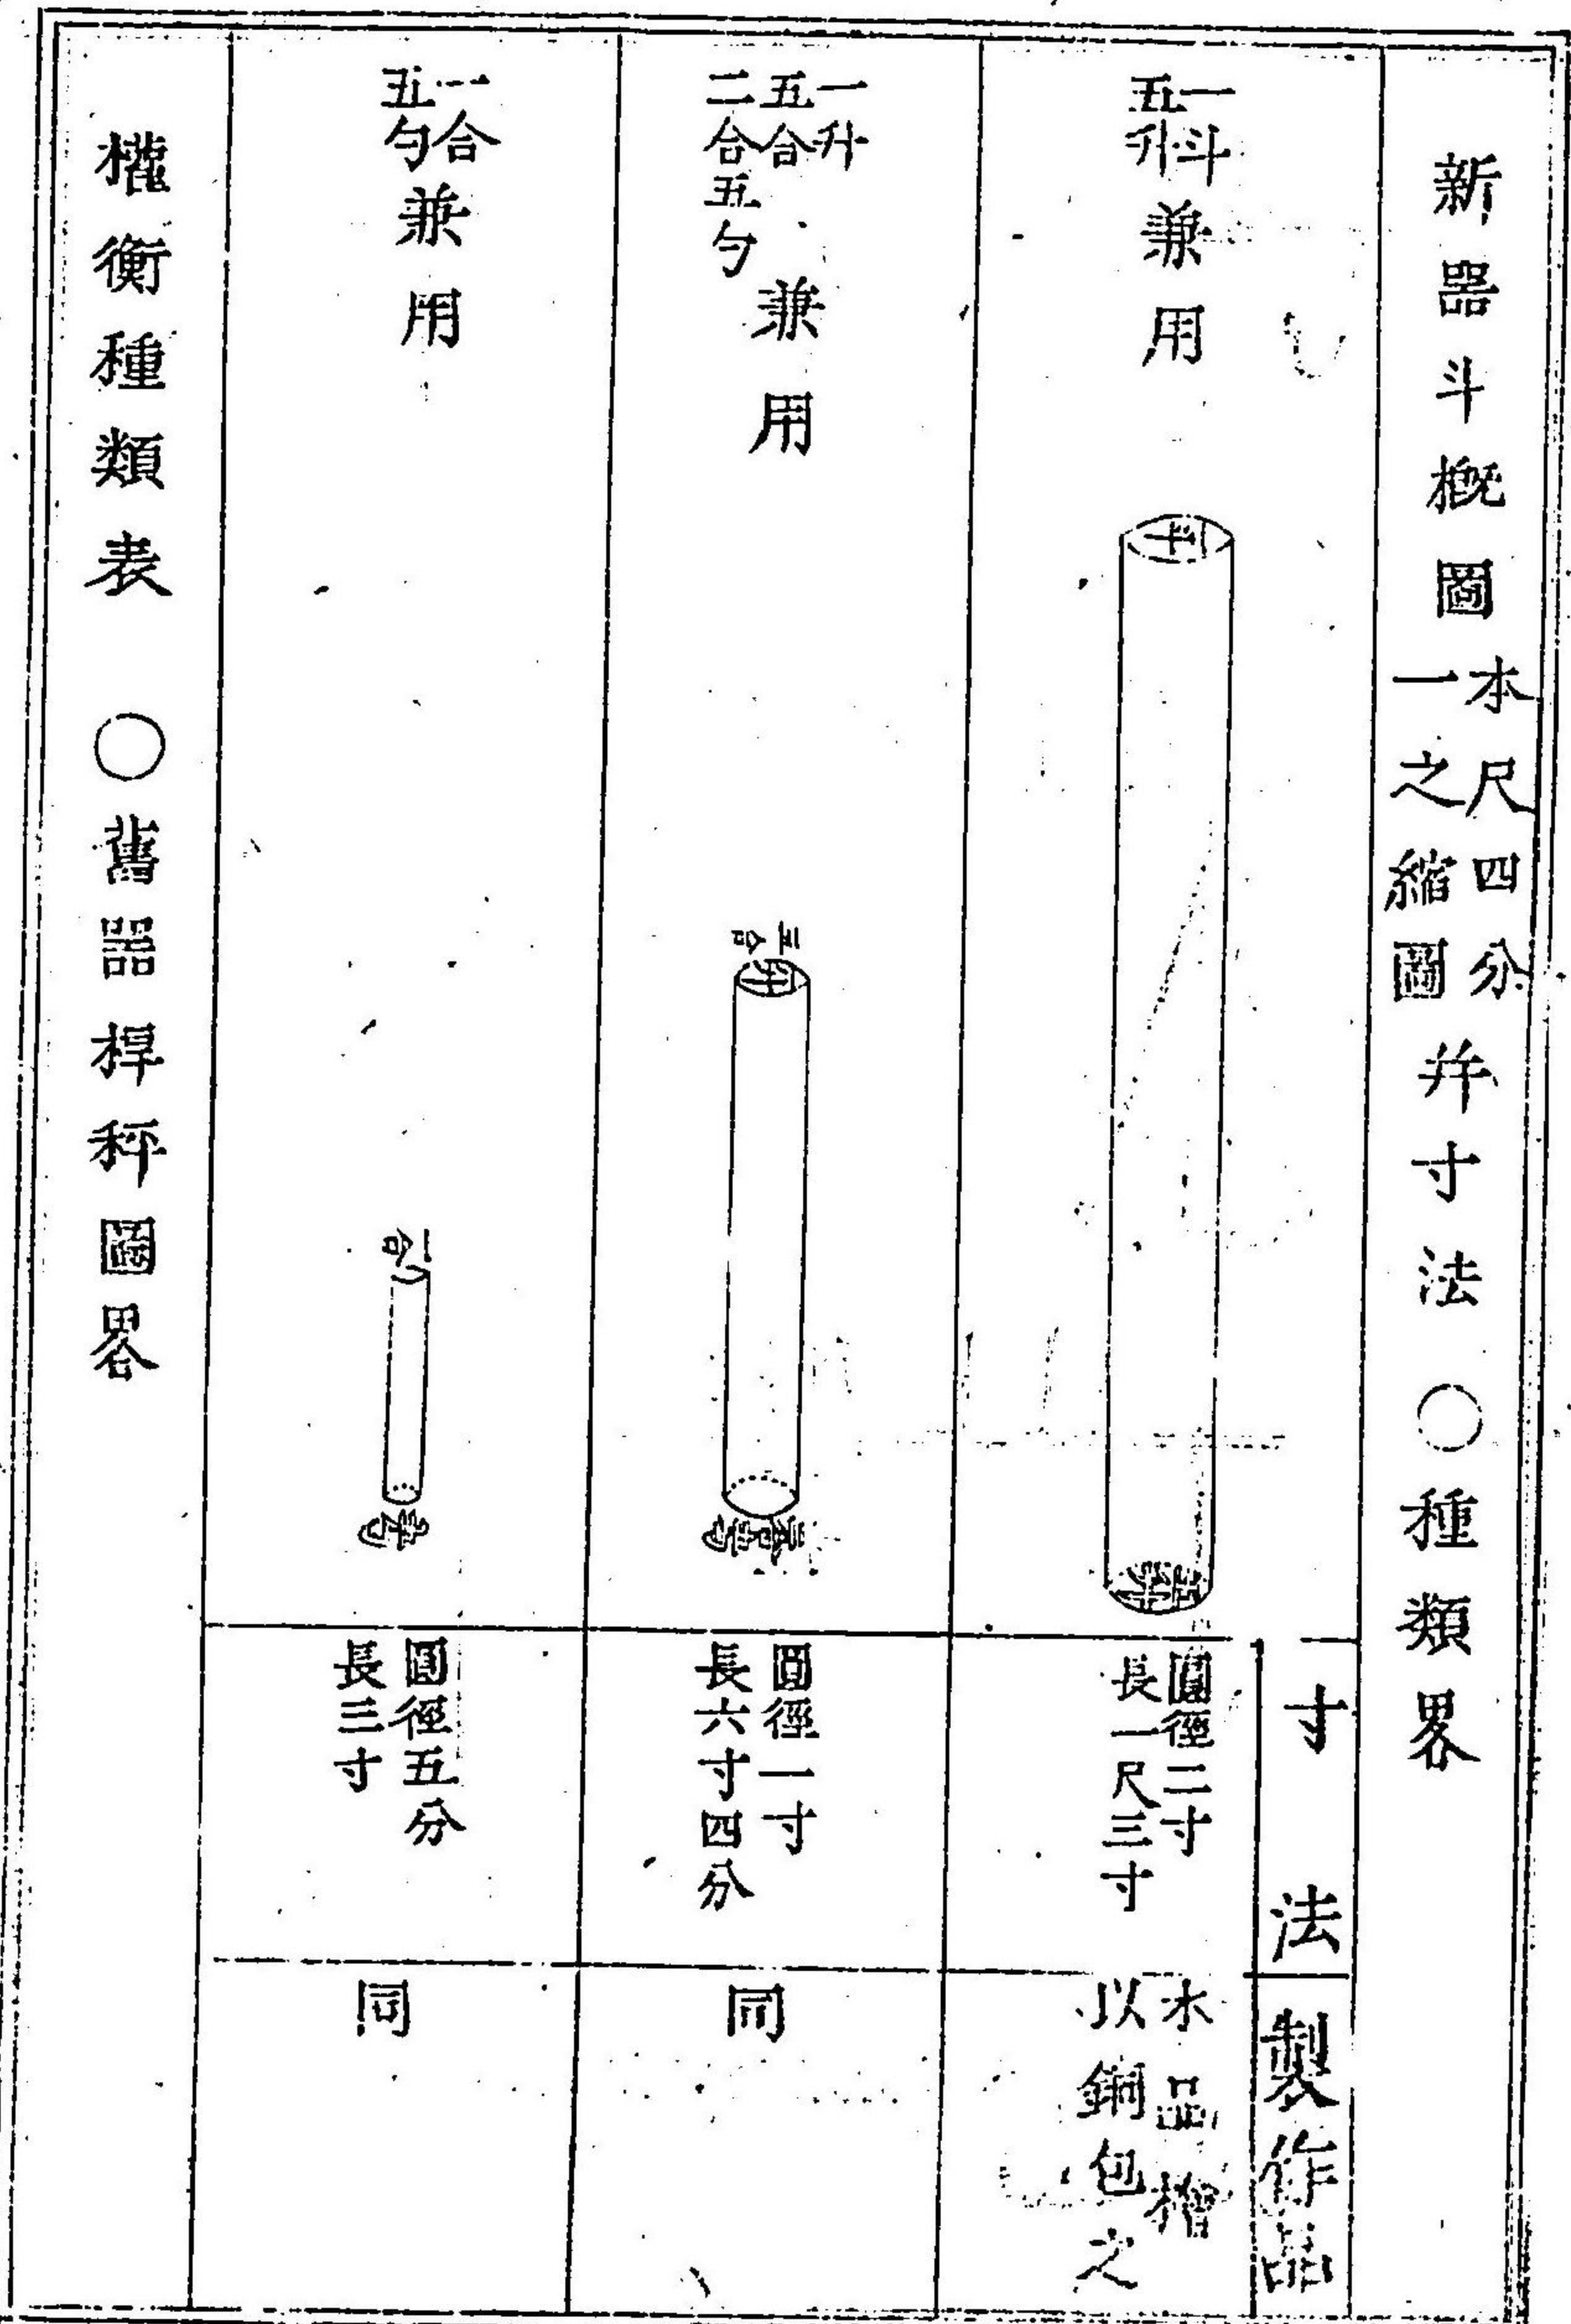 新器斗槪圖
本尺四分
一之縮圖
幷寸法 ○種類畧
寸法
製作品
一斗
五升
兼用
圓徑二寸
長一尺三寸
木品檜
以銅包之
一升
五合
二合五勺
兼用
五合
圓徑一寸
長六寸四分
同
一合
五勺
兼用
一合
圓徑五分
長三寸
同
權衡種類表 ○舊器桿秤圖畧